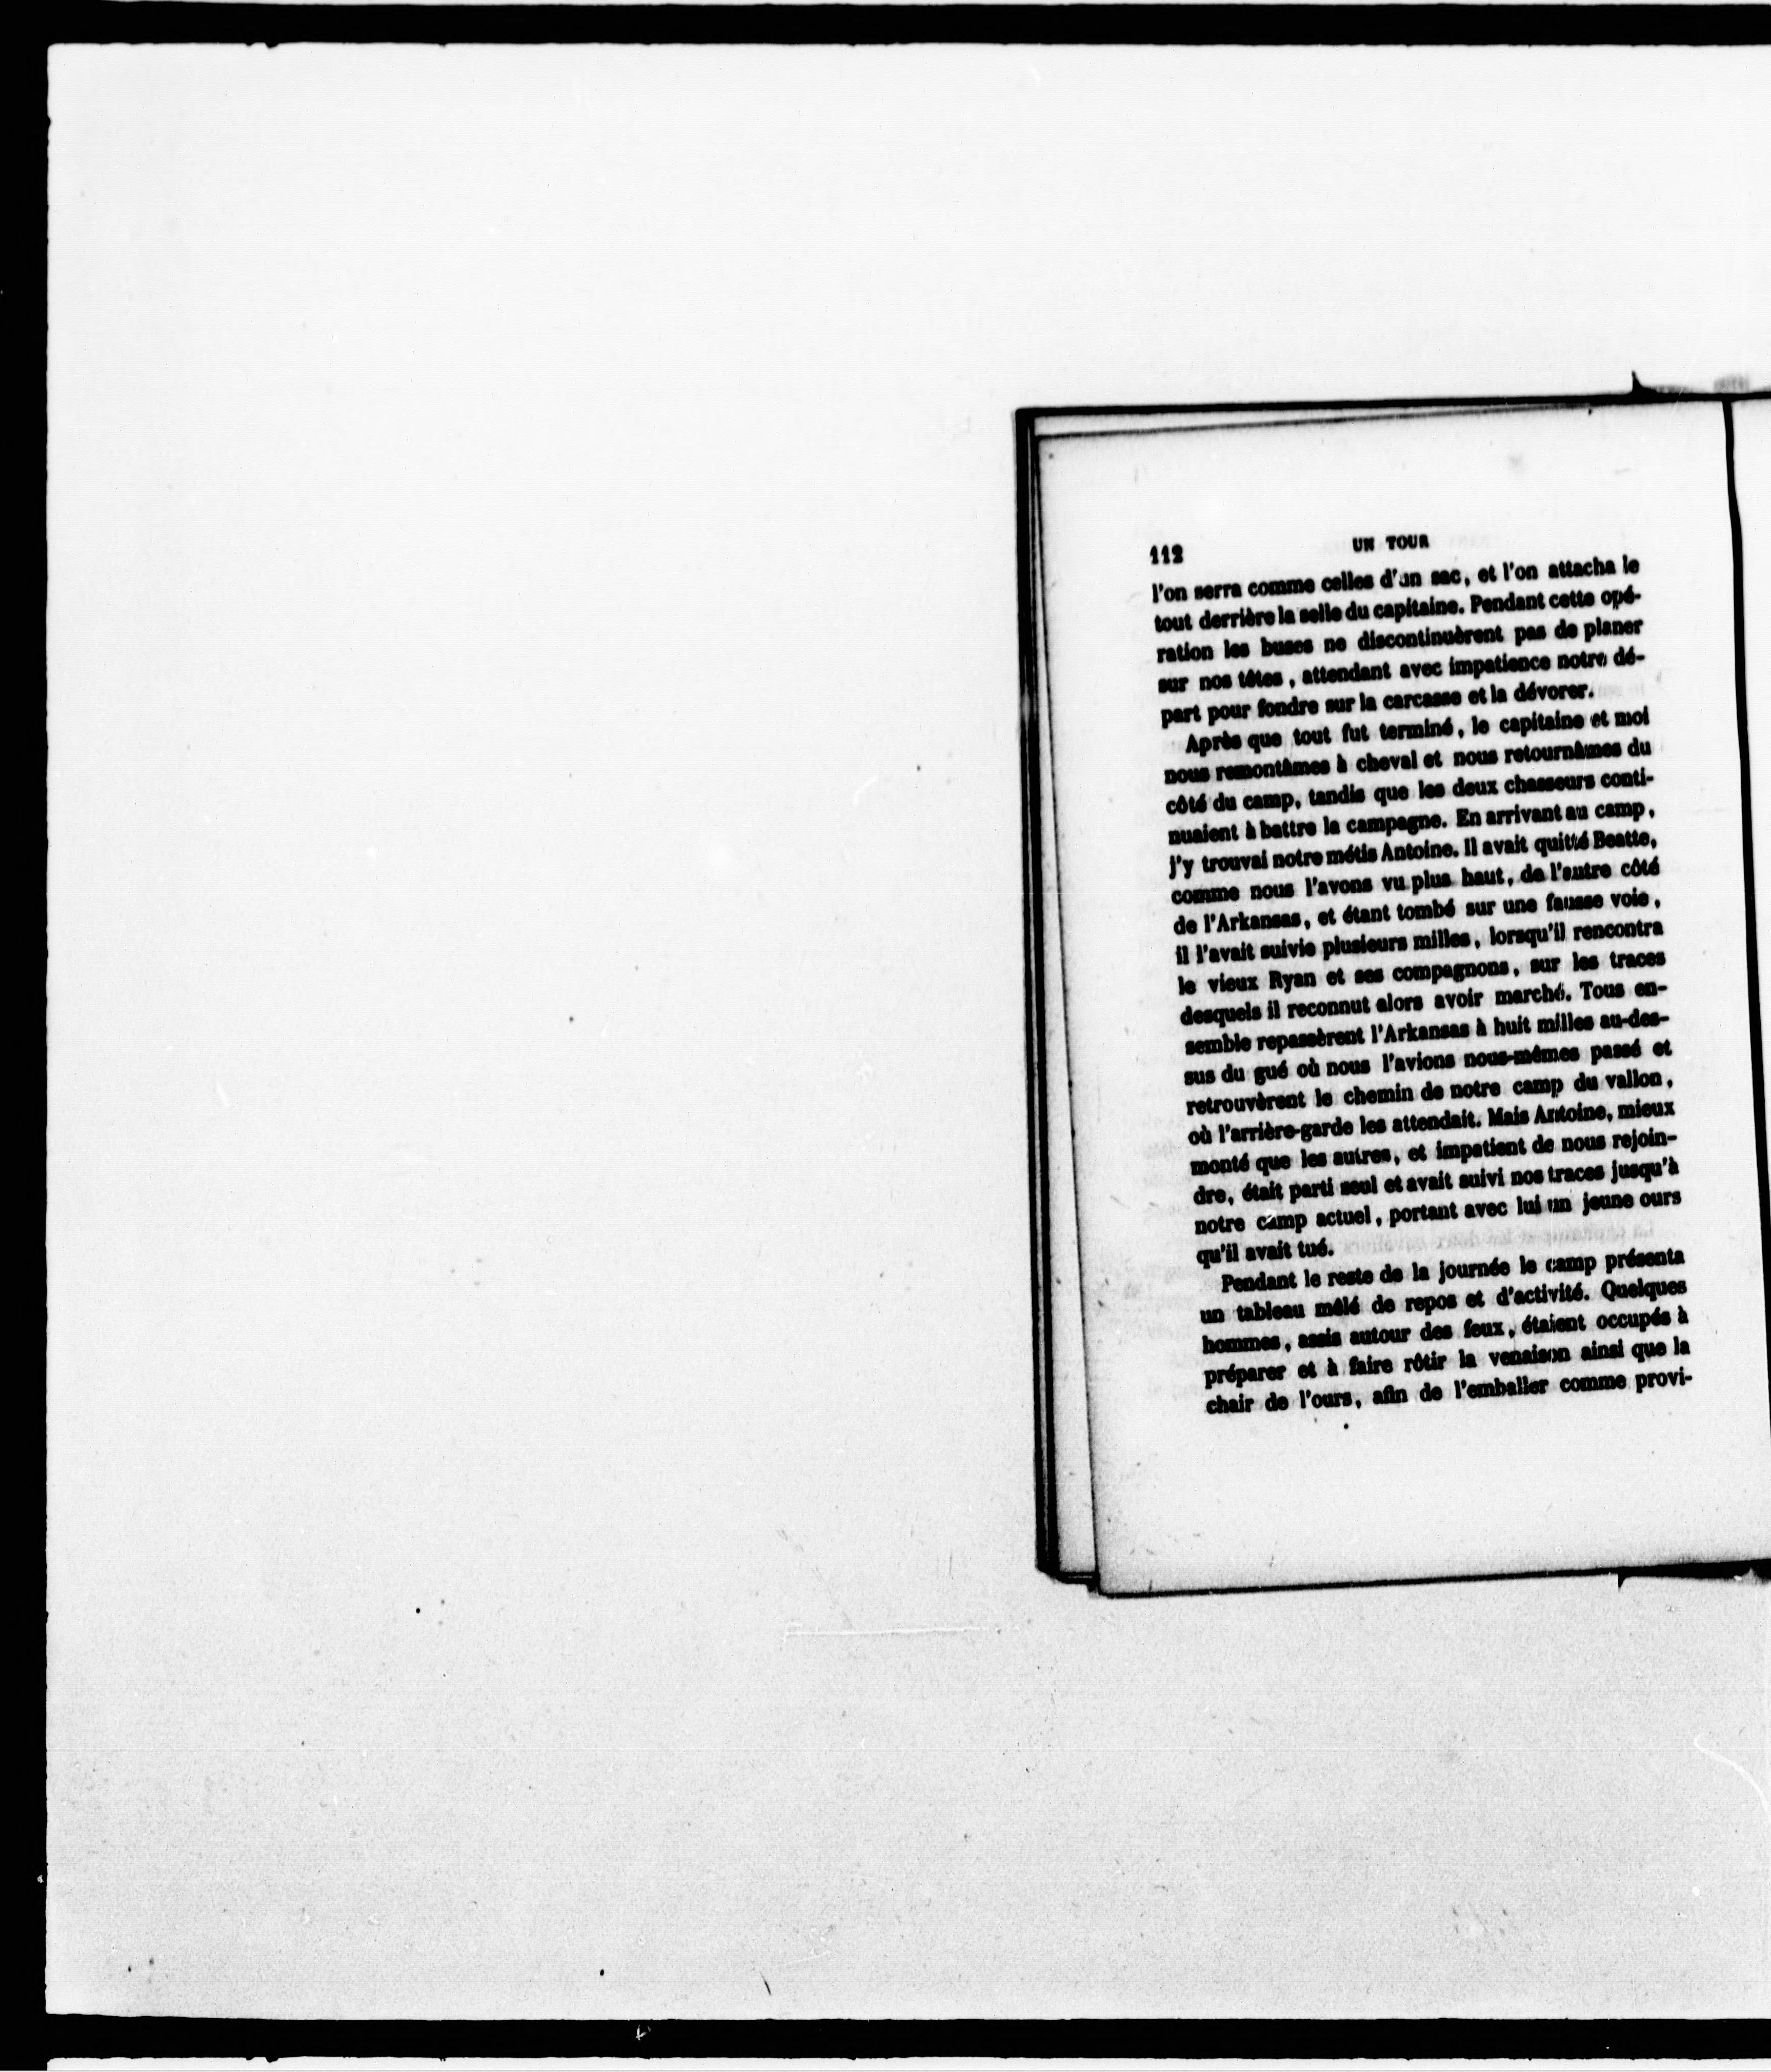 112 UN TOUR
l'on serra comme celles d'un sac, et l'on attacha le
tout derrière la selle du capitaine. Pendant cette opé-
ration les buses ne discontinuèrent pas de planer
sur nos têtes, attendant avec impatience notre dé-
part pour fondre sur la carcasse et la dévorer.
Après que tout fut terminé, le capitaine et moi
nous remontâmes à cheval et nous retournâmes du
côté du camp, tandis que les deux chasseurs conti-
nuaient à battre la campagne. En arrivant au camp,
j'y trouvai notre métis Antoine. Il avait quitté Beatte,
comme nous l'avons vu plus haut, de l'autre côté
de l'Arkansas, et étant tombé sur une fausse voie,
il l'avait suivie plusieurs milles, lorsqu'il rencontra
le vieux Ryan et ses compagnons, sur les traces
desquels il reconnut alors avoir marché. Tous en-
semble repassèrent l'Arkansas à huit milles au-des-
sus du gué où nous l'avions nous-mêmes passé et
retrouvèrent le chemin de notre camp du vallon,
où l'arrière-garde les attendait. Mais Antoine, mieux
monté que les autres, et impatient de nous rejoin-
dre, était parti seul et avait suivi nos traces jusqu'à
notre camp actuel, portant avec lui un jeune ours
qu'il avait tué.
Pendant le reste de la journée le camp présenta
un tableau mêlé de repos et d'activité. Quelques
hommes, assis autour des feux, étaient occupés à
préparer et à faire rôtir la venaison ainsi que la
chair de l'ours, afin de l'emballer comme provi-